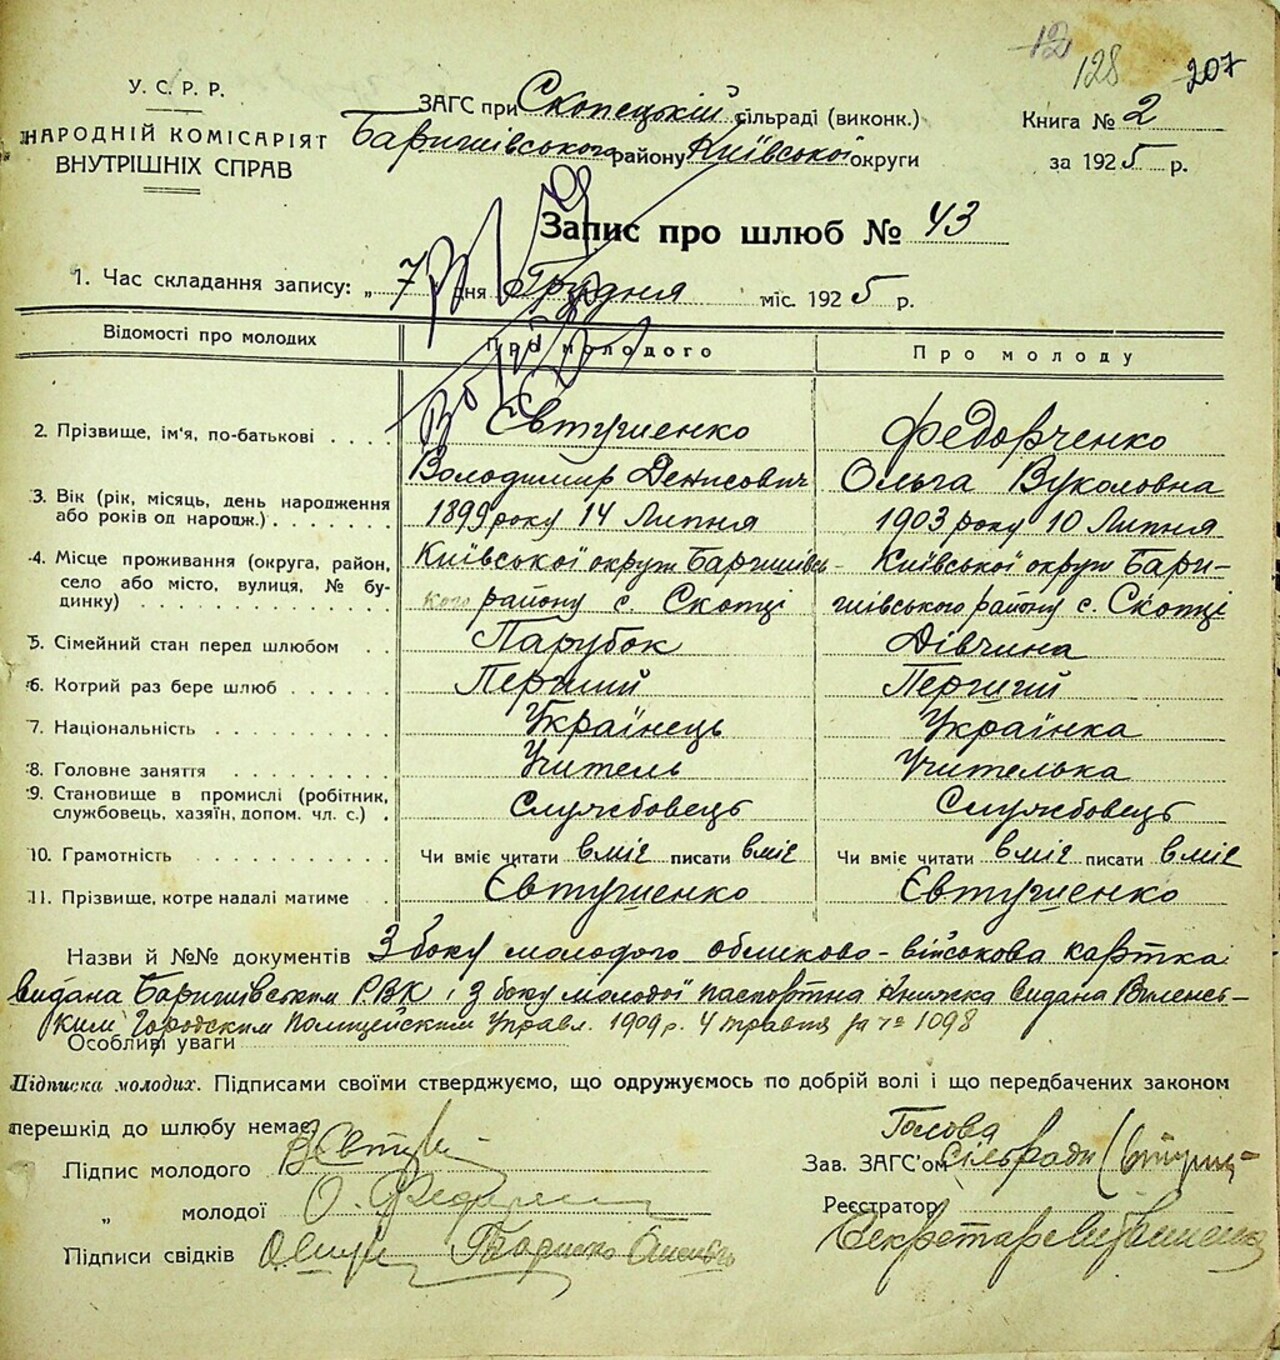 12
128 207
У. С. Р. Р.
НАРОДНІЙ КОМІСАРІЯТ
ВНУТРІШНІХ СПРАВ
ЗАГС при Скопецькій сільраді (виконк.)
Баришівського району Київської округи
Книга № 2
за 1925 р.
Запис про шлюб № 43
1. Час складання запису: „ 7 " дня Грудня міс. 1925 р.
Відомості про молодих Про молодого Про молоду
2. Прізвище, ім'я, по-батькові . . . . Євтушенко Федорченко
Володимир Денисович Ольга Вуколовна
3. Вік (рік, місяць, день народження
або років од народж.) . . . . . . . 1899 року 14 Липня 1903 року 10 Липня
4. Місце проживання (округа, район,
село або місто, вулиця, № бу-
динку) . . . . . . . . . . . .
Київської округи Баришівсь- Київської округи Бари-
кого району с. Скопці шівського району с. Скопці
5. Сімейний стан перед шлюбом . . Парубок Дівчина
6. Котрий раз бере шлюб . . . . . . Перший Перший
7. Національність . . . . . . . . . Українець Українка
8. Головне заняття . . . . . . . . . Учитель Учителька
9. Становище в промислі (робітник,
службовець, хазяїн, допом. чл. с.) . Службовець Службовець
10. Грамотність . . . . . . . . . . Чи вміє читати вміє писати вміє Чи вміє читати вміє писати вміє
11. Прізвище, котре надалі матиме . Євтушенко Євтушенко
Назви й №№ документів З боку молодого обликово-військова картка
видана Баришівським РВК і з боку молодої паспортна книжка видана Виленсь-
ким Городским Полицейским Управл. 1909 р. 4 травня за № 1098
Особливі уваги
Підписка молодих. Підписами своїми стверджуємо, що одружуємось по добрій волі і що передбачених законом
перешкід до шлюбу немає.
Підпис молодого
„ молодої
Підписи свідків
Голова
Зав. ЗАГС'ом Сільради
Реєстратор
Секретар